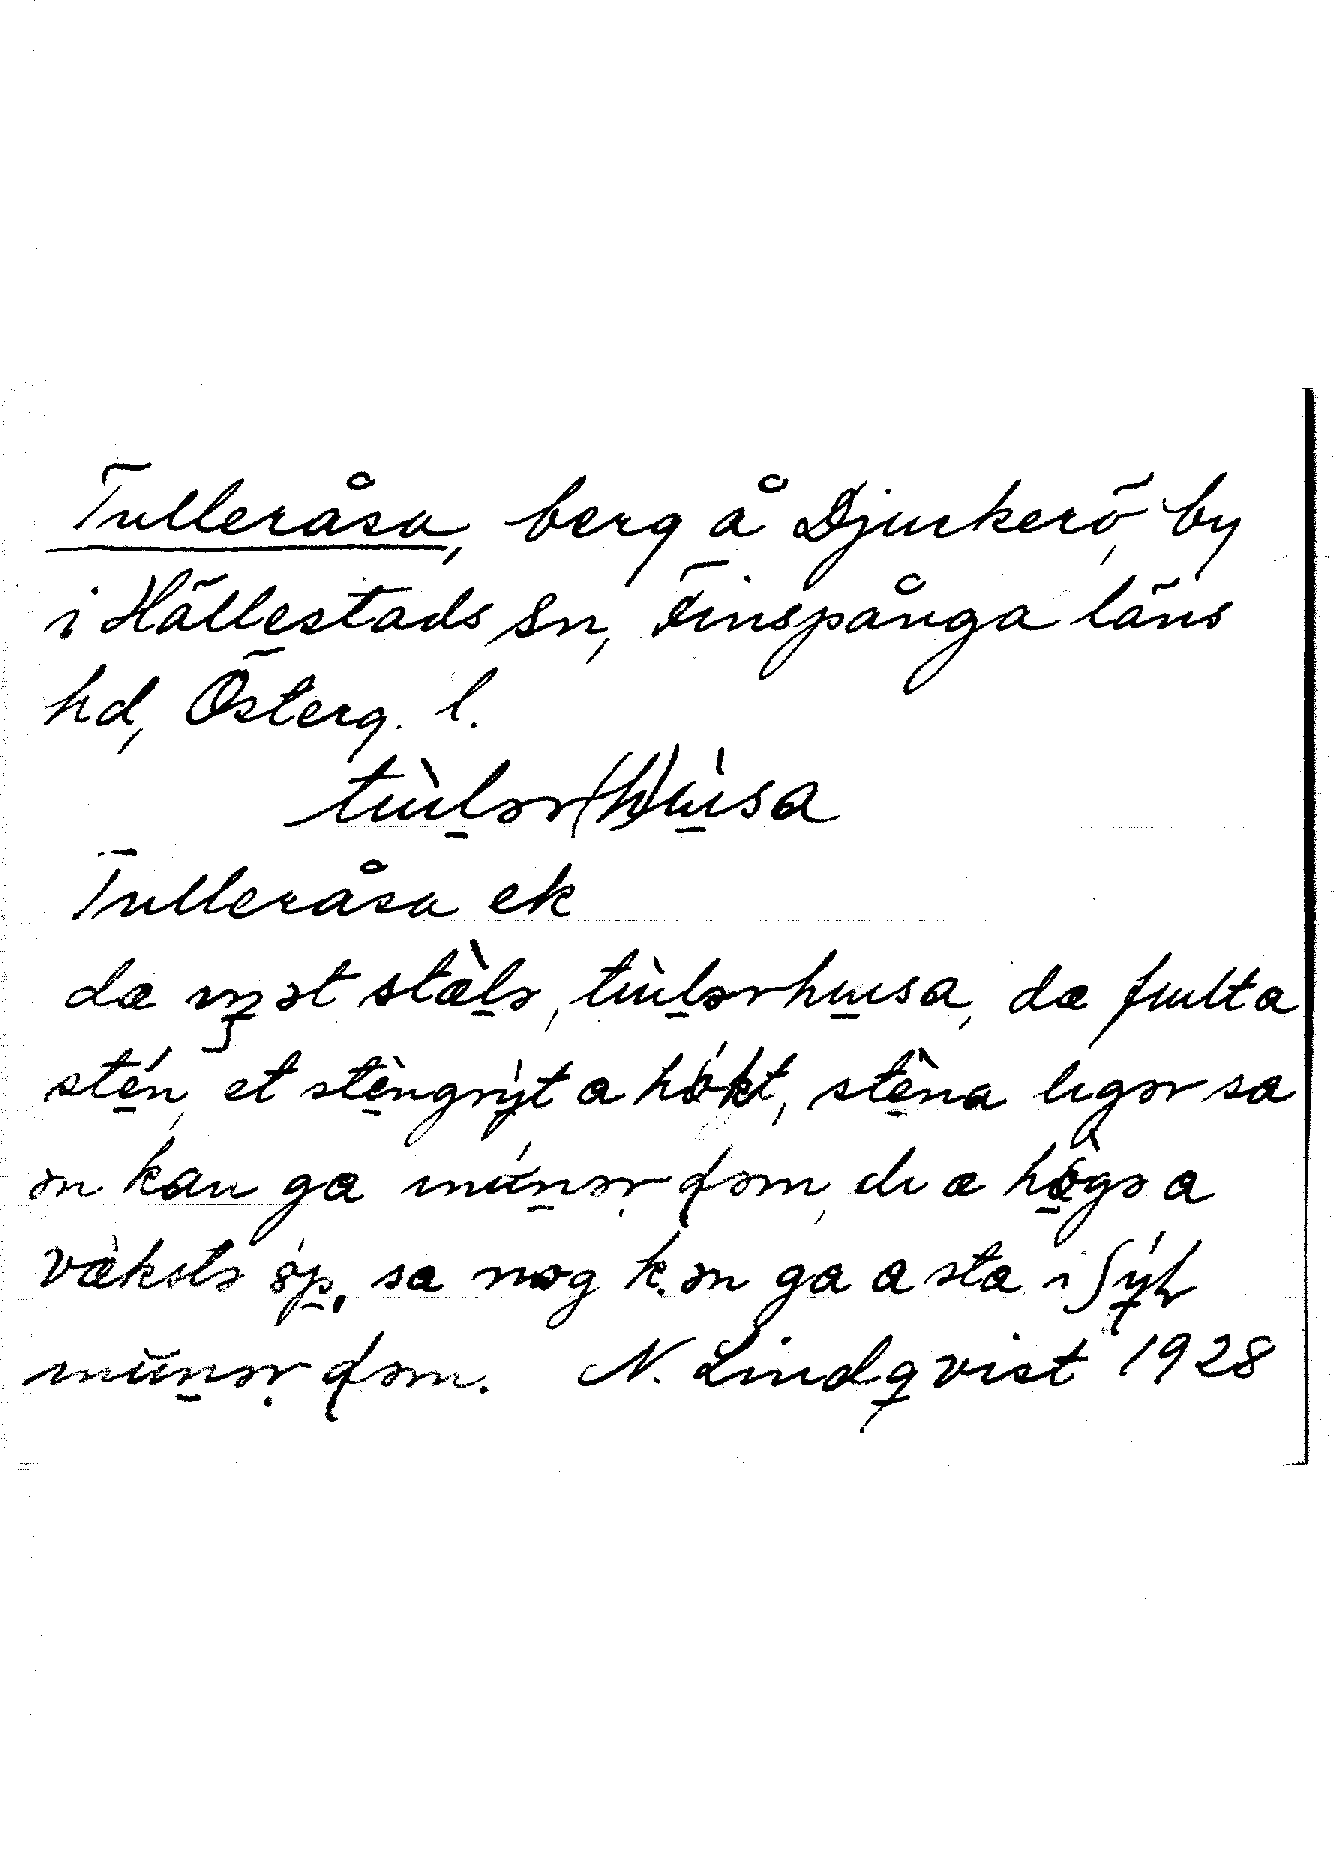 Tulleråsa, berg å Djurkerö, by
i Hällestads sn, Finspånga läns
hd, Österg. l.
tɯ̀lər(h)ɯ̀sa
Tulleråsa ek
dæ stæ̀lə, tɯ̀lərhɯsa, dæ fɯlt a
stén, et stèngrỳt a hókt, stèna ligər sa
ən kan ga ɯnənər dəm, di æ hö̀gə a
væ̀kstə óp, sa nog k.ən ga a sta i
ɯnənər dəm. N. Lindqvist 1928